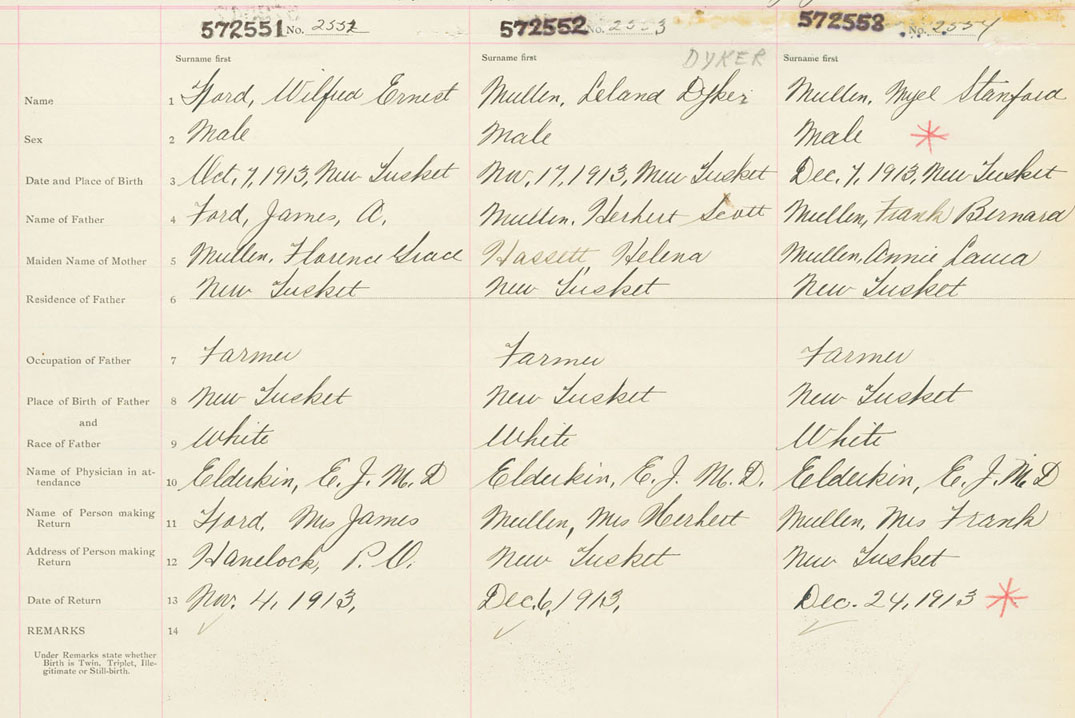 572551 No. 2552 572552 No. 2553 572553 No. 2554
Surname first Surname first DYKER Surname first
Name 1 Ford, Wilfred Ernest Mullen, Leland Dyker Mullen, Stanford
Sex 2 Male Male Male
Date and Place of Birth 3 Oct. 7, 1913, New Tusket Nov. 17, 1913, New Tusket Dec. 7, 1913, New Tusket
Name of Father 4 Ford, James, A. Mullen, Herbert Scott Mullen, Frank Bernard
Maiden Name of Mother 5 Mullen, Florence Grace Hassett, Helena Mullen, Annie Laura
Residence of Father 6 New Tusket New Tusket New Tusket
Occupation of Father 7 Farmer Farmer Farmer
Place of Birth of Father 8 New Tusket New Tusket New Tusket
and
Race of Father 9 White White White
Name of Physician in at-
tendance 10 Elderkin, E. J. M. D Elderkin, E. J. M. D. Elderkin, E. J. M. D
Name of Person making
Return 11 Ford, Mrs James Mullen, Mrs Herbert Mullen, Mrs Frank
Address of Person making
Return 12 Havelock, P. O. New Tusket New Tusket
Date of Return 13 Nov. 4, 1913, Dec. 6, 1913, Dec. 24, 1913
REMARKS 14
Under Remarks state whether
Birth is Twin, Triplet, Ille-
gitimate or Still-birth.